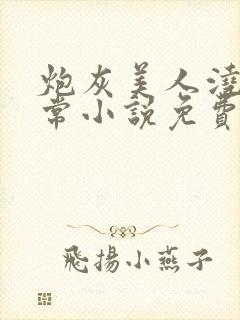 炮灰美人澆
常小說免費
飛揚小燕子